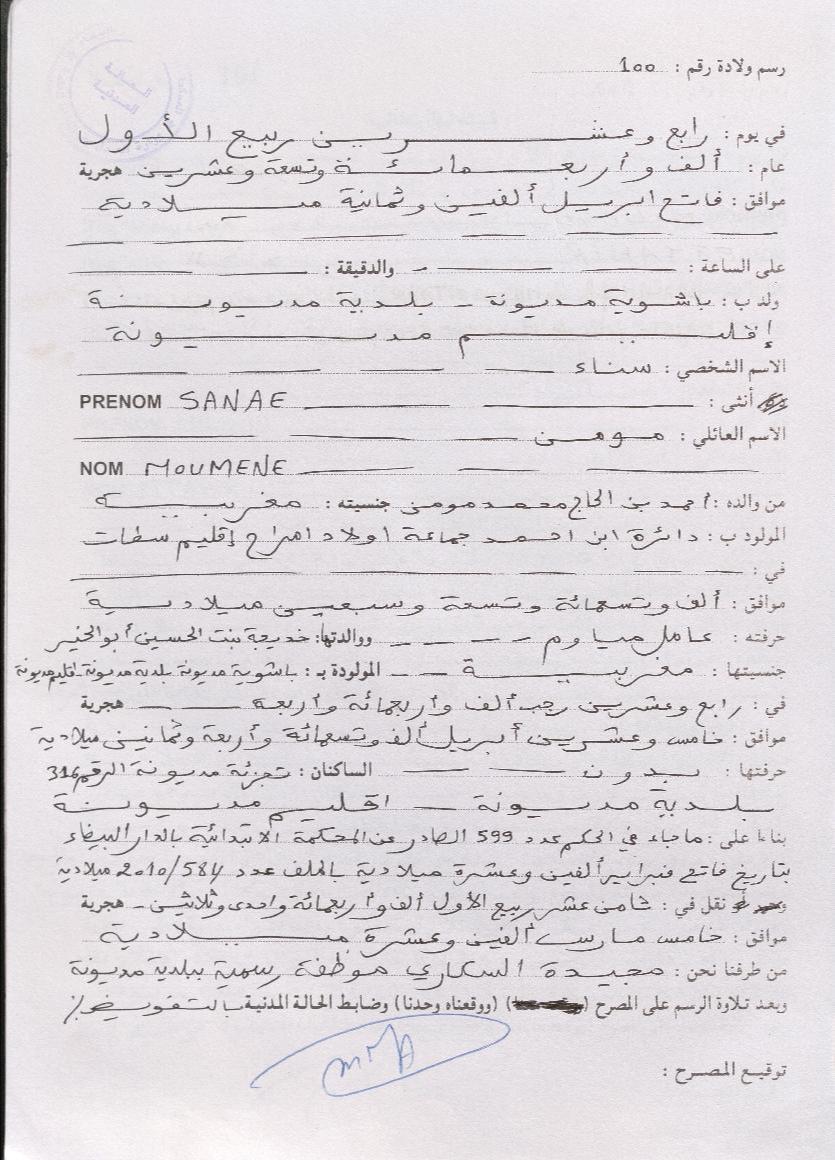 الحالة
المدنية
رسم ولادة رقم : 100
في يوم : رابع وعشرين ربيع الأول
عام : ألف وأربعمائة وتسعة وعشرين هجرية
موافق : فاتح ابريل ألفين وثمانية ميلادية
على الساعة : والدقيقة :
ولد ب : باشوية مديونة - بلدية مديونة
إقليم مديونة
الاسم الشخصي : سناء
أنثى : PRENOM SANAE
الاسم العائلي : مومن
NOM MOUMENE
من والده : احمد بن الحاج محمد مومن جنسيته : مغربية
المولود ب : دائرة ابن احمد جماعة اولاد امراح إقليم سطات
في :
موافق : ألف وتسعمائة وتسعة وسبعين ميلادية
حرفته : عامل مياوم ووالدتها : خديجة بنت الحسين أبو الخير
جنسيتها : مغربية المولودة بـ : باشوية مديونة بلدية مديونة - اقليم مديونة
في : رابع وعشرين رجب ألف واربعمائة واربعة هجرية
موافق : خامس وعشرين أبريل ألف وتسعمائة وأربعة وثمانين ميلادية
حرفتها : بدون الساكنان : تجزئة مديونة الرقم 316
بلدية مديونة - اقليم مديونة
بناءا على : ماجاء في الحكم عدد 599 الصادر عن المحكمة الابتدائية بالدار البيضاء
بتاريخ فاتح فبراير ألفين وعشرة ميلادية بالملف عدد 2010/584 ميلادية
نقل في : ثامن عشر ربيع الأول ألف وأربعمائة واحدى وثلاثين - هجرية
موافق : خامس مارس ألفين وعشرة ميلادية
من طرفنا نحن : مجيدة السكاري موظفة رسمية ببلدية مديونة
وبعد تلاوة الرسم على المصرح ( ) (ووقعناه وحدنا) وضابط الحالة المدنية بالتفويض /.
توقيع المصرح :